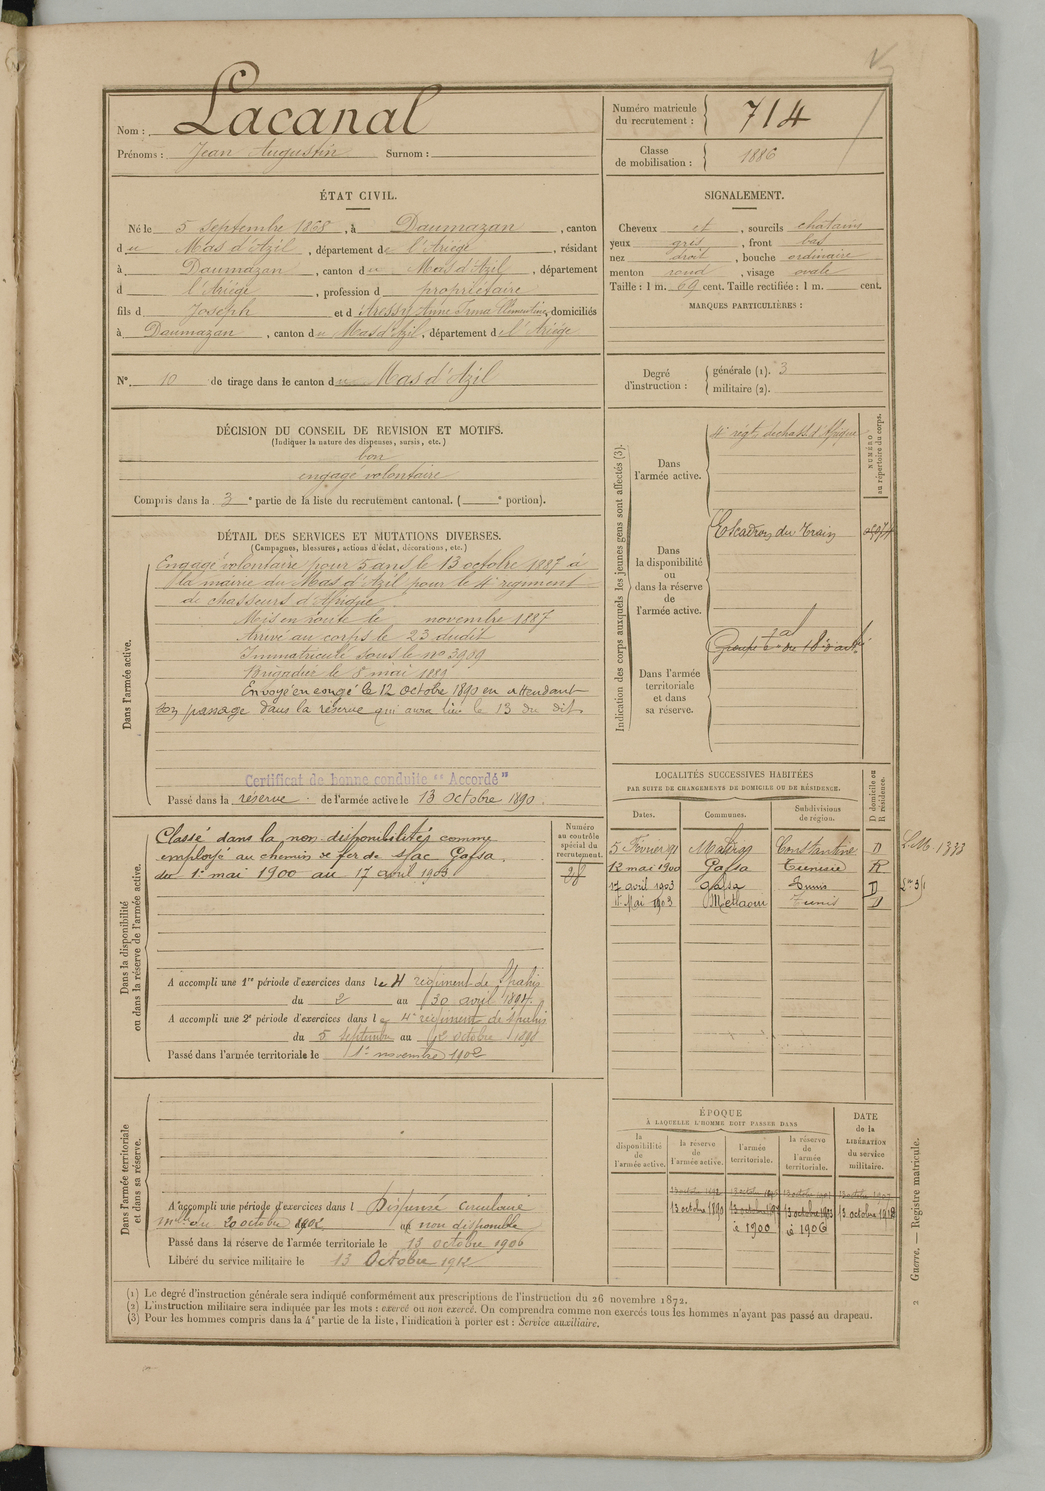 Nom : Lacanal
Prénoms : Jean Augustin Surnom :
Numéro matricule du recrutement : 714
Classe de mobilisation : 1886
ÉTAT CIVIL.
Né le 5 Septembre 1868, à Daumazan, canton
du Mas d'Azil, département de l'Ariège, résidant
à Daumazan, canton du Mas d'Azil, département
d l'Ariège, profession d propriétaire
fils d Joseph et d Aressy Anne Irma Clémentine, domiciliés
à Daumazan, canton du Mas d'Azil, département de l'Ariège
SIGNALEMENT.
Cheveux et, sourcils châtains
yeux gris, front bas
nez droit, bouche ordinaire
menton rond, visage ovale
Taille : 1 m. 69 cent. Taille rectifiée : 1 m. cent.
MARQUES PARTICULIÈRES :
N° 10 de tirage dans le canton du Mas d'Azil
Degré d'instruction : générale (1). 3
militaire (2).
DÉCISION DU CONSEIL DE REVISION ET MOTIFS.
(Indiquer la nature des dispenses, sursis, etc.)
bon
engagé volontaire
Compris dans la 3e partie de la liste du recrutement cantonal. ( e portion).
DÉTAIL DES SERVICES ET MUTATIONS DIVERSES.
(Campagnes, blessures, actions d'éclat, décorations, etc.)
Dans l'armée active.
Engagé volontaire pour 5 ans le 13 octobre 1887 à
la mairie du Mas d'Azil pour le 4e régiment
de chasseurs d'Afrique
Mis en route le novembre 1887
Arrivé au corps le 23 dudit
Immatriculé sous le no 3989
Brigadier le 8 mai 1889
Envoyé en congé le 12 octobre 1890 en attendant
son passage dans la réserve qui aura lieu le 13 du dit
Certificat de bonne conduite "Accordé"
Passé dans la réserve de l'armée active le 13 Octobre 1890.
Indication des corps auxquels les jeunes gens sont affectés (3).
NUMÉRO au répertoire du corps.
Dans l'armée active.
4e régt de chass. d'Afrique
Dans la disponibilité ou dans la réserve de l'armée active.
Escadron du Train
Dans l'armée territoriale et dans sa réserve.
LOCALITÉS SUCCESSIVES HABITÉES
PAR SUITE DE CHANGEMENTS DE DOMICILE OU DE RÉSIDENCE.
Dates. Communes. Subdivisions de région. D domicile ou R résidence.
5 Février 91 Constantine D
12 mai 1900 Gafsa Tunisie R
17 avril 1903 Gafsa Tunis D
Mai 1903 Tunis D
Dans la disponibilité ou dans la réserve de l'armée active.
Numéro au contrôle spécial du recrutement.
28
Classé dans la non-disponibilité comme
employé au chemin de fer de Sfax Gafsa,
du 1er mai 1900 au 17 avril 1903
A accompli une 1re période d'exercices dans le 4 régiment de Spahis
du 2 au 30 avril 1894.
A accompli une 2e période d'exercices dans le 4e régiment de Spahis
du 5 septembre au 2 octobre 1898
Passé dans l'armée territoriale le 1er novembre 1902
Dans l'armée territoriale et dans sa réserve.
A accompli une période d'exercices dans l Dispensé circulaire
mlle du 20 octobre 1902 au non disponible
Passé dans la réserve de l'armée territoriale le 13 octobre 1906
Libéré du service militaire le 13 Octobre 1912
ÉPOQUE
À LAQUELLE L'HOMME DOIT PASSER DANS
la disponibilité de l'armée active. la réserve de l'armée active. l'armée territoriale. la réserve de l'armée territoriale.
DATE de la LIBÉRATION du service militaire.
13 octobre 1892 13 octobre 1907
13 octobre 1890 13 octobre 1897 13 octobre 1903 13 octobre 1912
à 1900 à 1906
Guerre. — Registre matricule.
(1) Le degré d'instruction générale sera indiqué conformément aux prescriptions de l'instruction du 26 novembre 1872.
(2) L'instruction militaire sera indiquée par les mots : exercé ou non exercé. On comprendra comme non exercés tous les hommes n'ayant pas passé au drapeau.
(3) Pour les hommes compris dans la 4e partie de la liste, l'indication à porter est : Service auxiliaire.